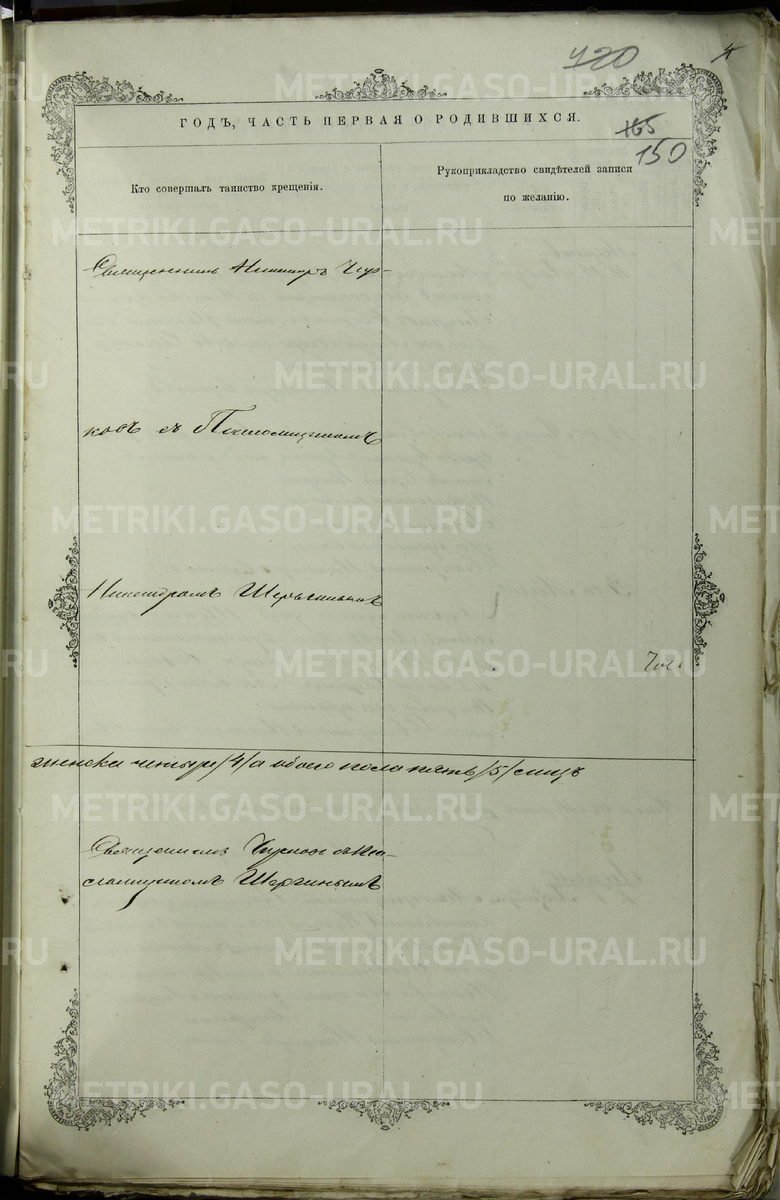 420
ГОДЪ, ЧАСТЬ ПЕРВАЯ О РОДИВШИХСЯ.
165
150
Кто совершалъ таинство крещенія.
Рукоприкладство свидѣтелей записи
по желанію.
Священникъ Чир-
ковъ съ Псаломщикомъ
Никандромъ Шергинымъ
женска четыре /4/ а обоего пола пять /5/ лицъ
Священникъ съ Пса-
ломщикомъ Шергинымъ
METRIKI.GASO-URAL.RU